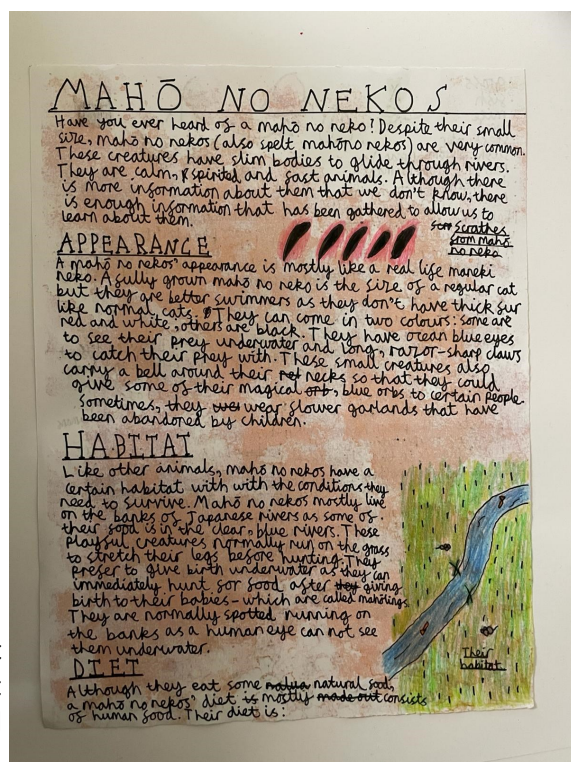 MAHŌ NO NEKOS
Have you ever heard of a mahō no neko? Despite their small
size, mahō no nekos (also spelt mahōno nekos) are very common.
These creatures have slim bodies to glide through rivers.
They are calm, spirited and fast animals. Although there
is more information about them that we don't know, there
is enough information that has been gathered to allow us to
learn about them.
Scrathes
from mahō
no neko
APPEARANCE
A mahō no nekos' appearance is mostly like a real life maneki
neko. A fully grown mahō no neko is the size of a regular cat
but they are better swimmers as they don't have thick fur
like normal cats. They can come in two colours: some are
red and white, others are black. They have ocean blue eyes
to see their prey underwater and long, razor-sharp claws
to catch their prey with. These small creatures also
carry a bell around their necks so that they could
give some of their magical orb, blue orbs to certain people.
Sometimes, they wear flower garlands that have
been abandoned by children.
HABITAT
Like other animals, mahō no nekos have a
certain habitat with with the conditions they
need to survive. Mahō no nekos mostly live
on the banks of Japanese rivers as some of
their food is in the clear, blue rivers. These
playful creatures normally run on the grass
to stretch their legs before hunting. They
prefer to give birth underwater as they can
immediately hunt for food after they giving
birth to their babies - which are called mahōlings.
They are normally spotted running on
the banks as a human eye can not see
them underwater.
Their
habitat
DIET
Although they eat some natural food,
a mahō no nekos' diet is mostly made out consists
of human food. Their diet is: